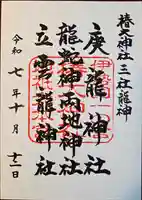 椿大神社 三社龍神
庚龍神社
龍蛇神両地神社
立雲龍神社
令和七年十月十二日